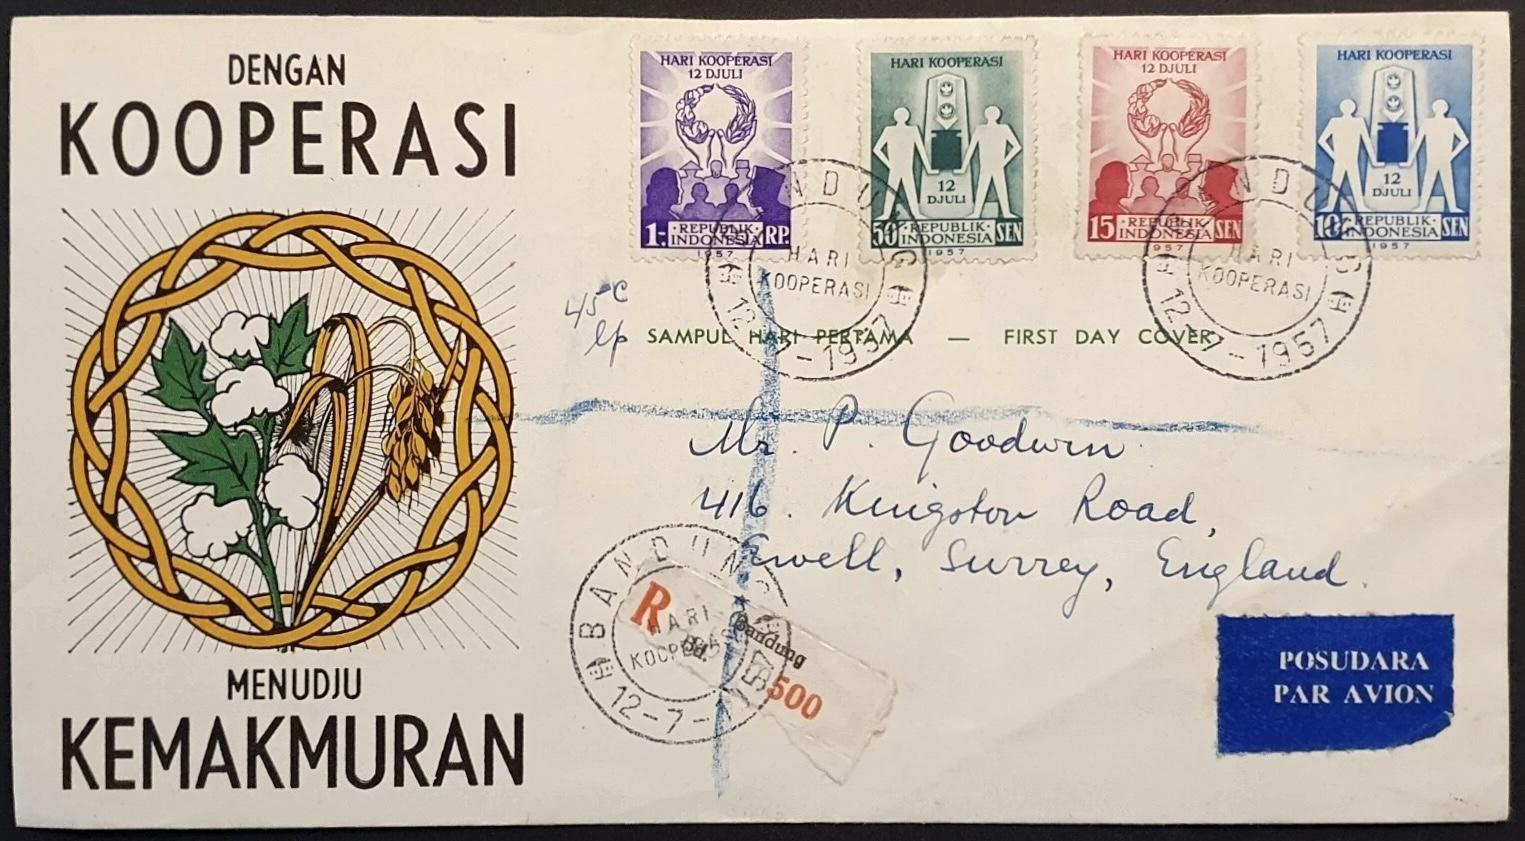 DENGAN
KOOPERASI
MENUDJU
KEMAKMURAN
HARI KOOPERASI
12 DJULI
1:- REPUBLIK INDONESIA RP.
1957
HARI KOOPERASI
12
DJULI
50 REPUBLIK INDONESIA SEN
1957
HARI KOOPERASI
12 DJULI
15 REPUBLIK INDONESIA SEN
1957
HARI KOOPERASI
12
DJULI
10 REPUBLIK INDONESIA SEN
1957
BANDUNG
HARI
KOOPERASI
12-7-1957
BANDUNG
HARI
KOOPERASI
12-7-1957
SAMPUL HARI PERTAMA — FIRST DAY COVER
Mr. P. Goodwin
416. Kingston Road,
Ewell, Surrey, England.
BANDUNG
HARI
KOOPERASI
12-7-1957
R
Bandung
500
POSUDARA
PAR AVION